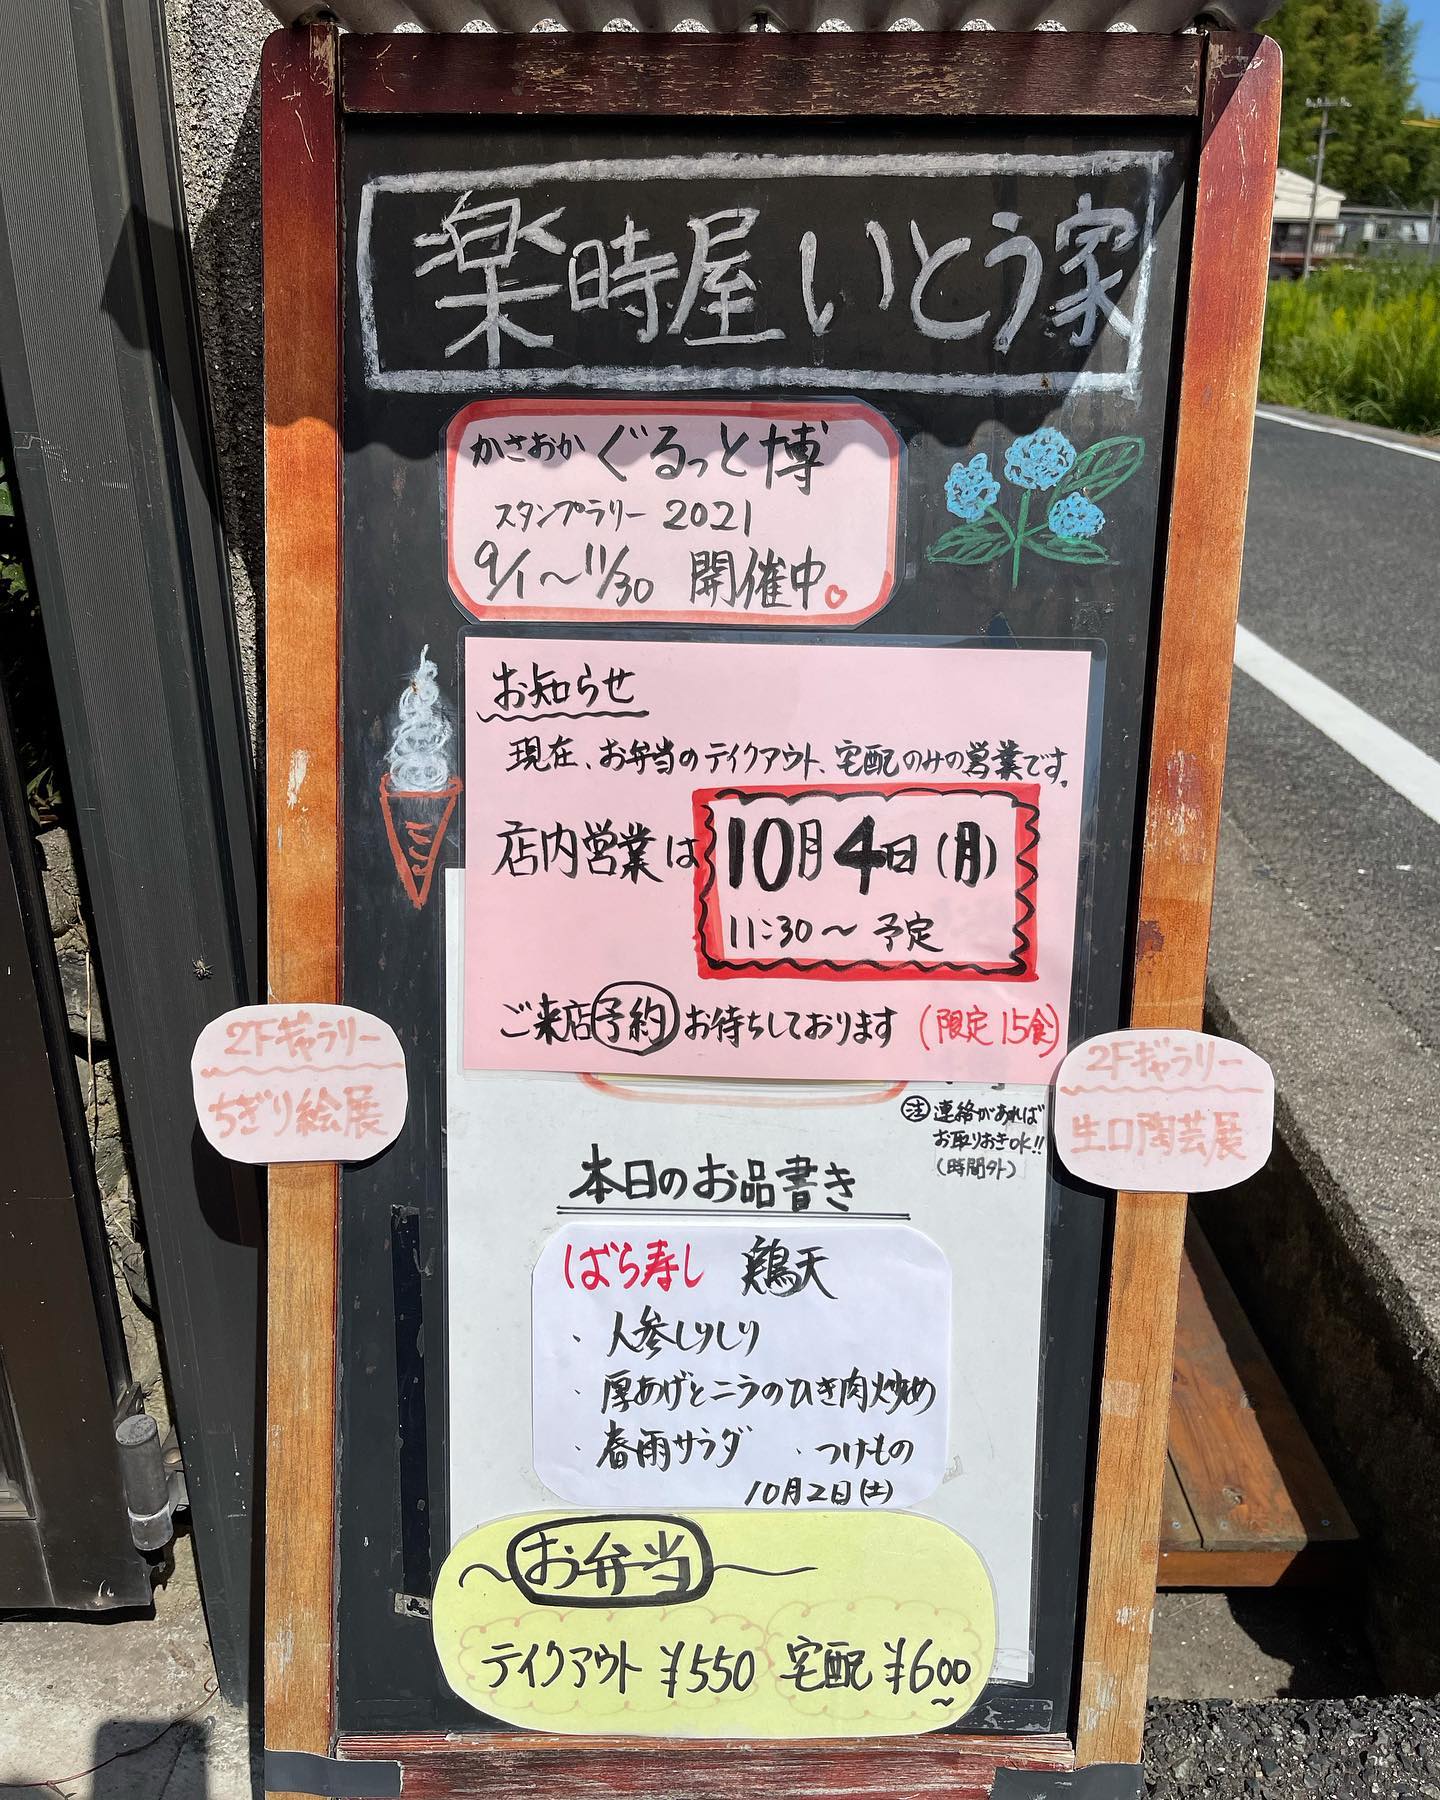 楽時屋 いとう家
かさおか ぐるっと博
スタンプラリー 2021
9/1〜11/30 開催中。
お知らせ
現在、お弁当のテイクアウト、宅配のみの営業です。
店内営業は 10月4日(月)
11:30〜 予定
ご来店予約お待ちしております (限定15食)
2Fギャラリー
ちぎり絵展
2Fギャラリー
生口陶芸展
注 連絡があれば
お取りおきOK!!
(時間外)
本日のお品書き
ばら寿し 鶏天
・人参しりしり
・厚あげとニラのひき肉炒め
・春雨サラダ ・つけもの
10月2日(土)
〜お弁当〜
テイクアウト ¥550 宅配 ¥600〜